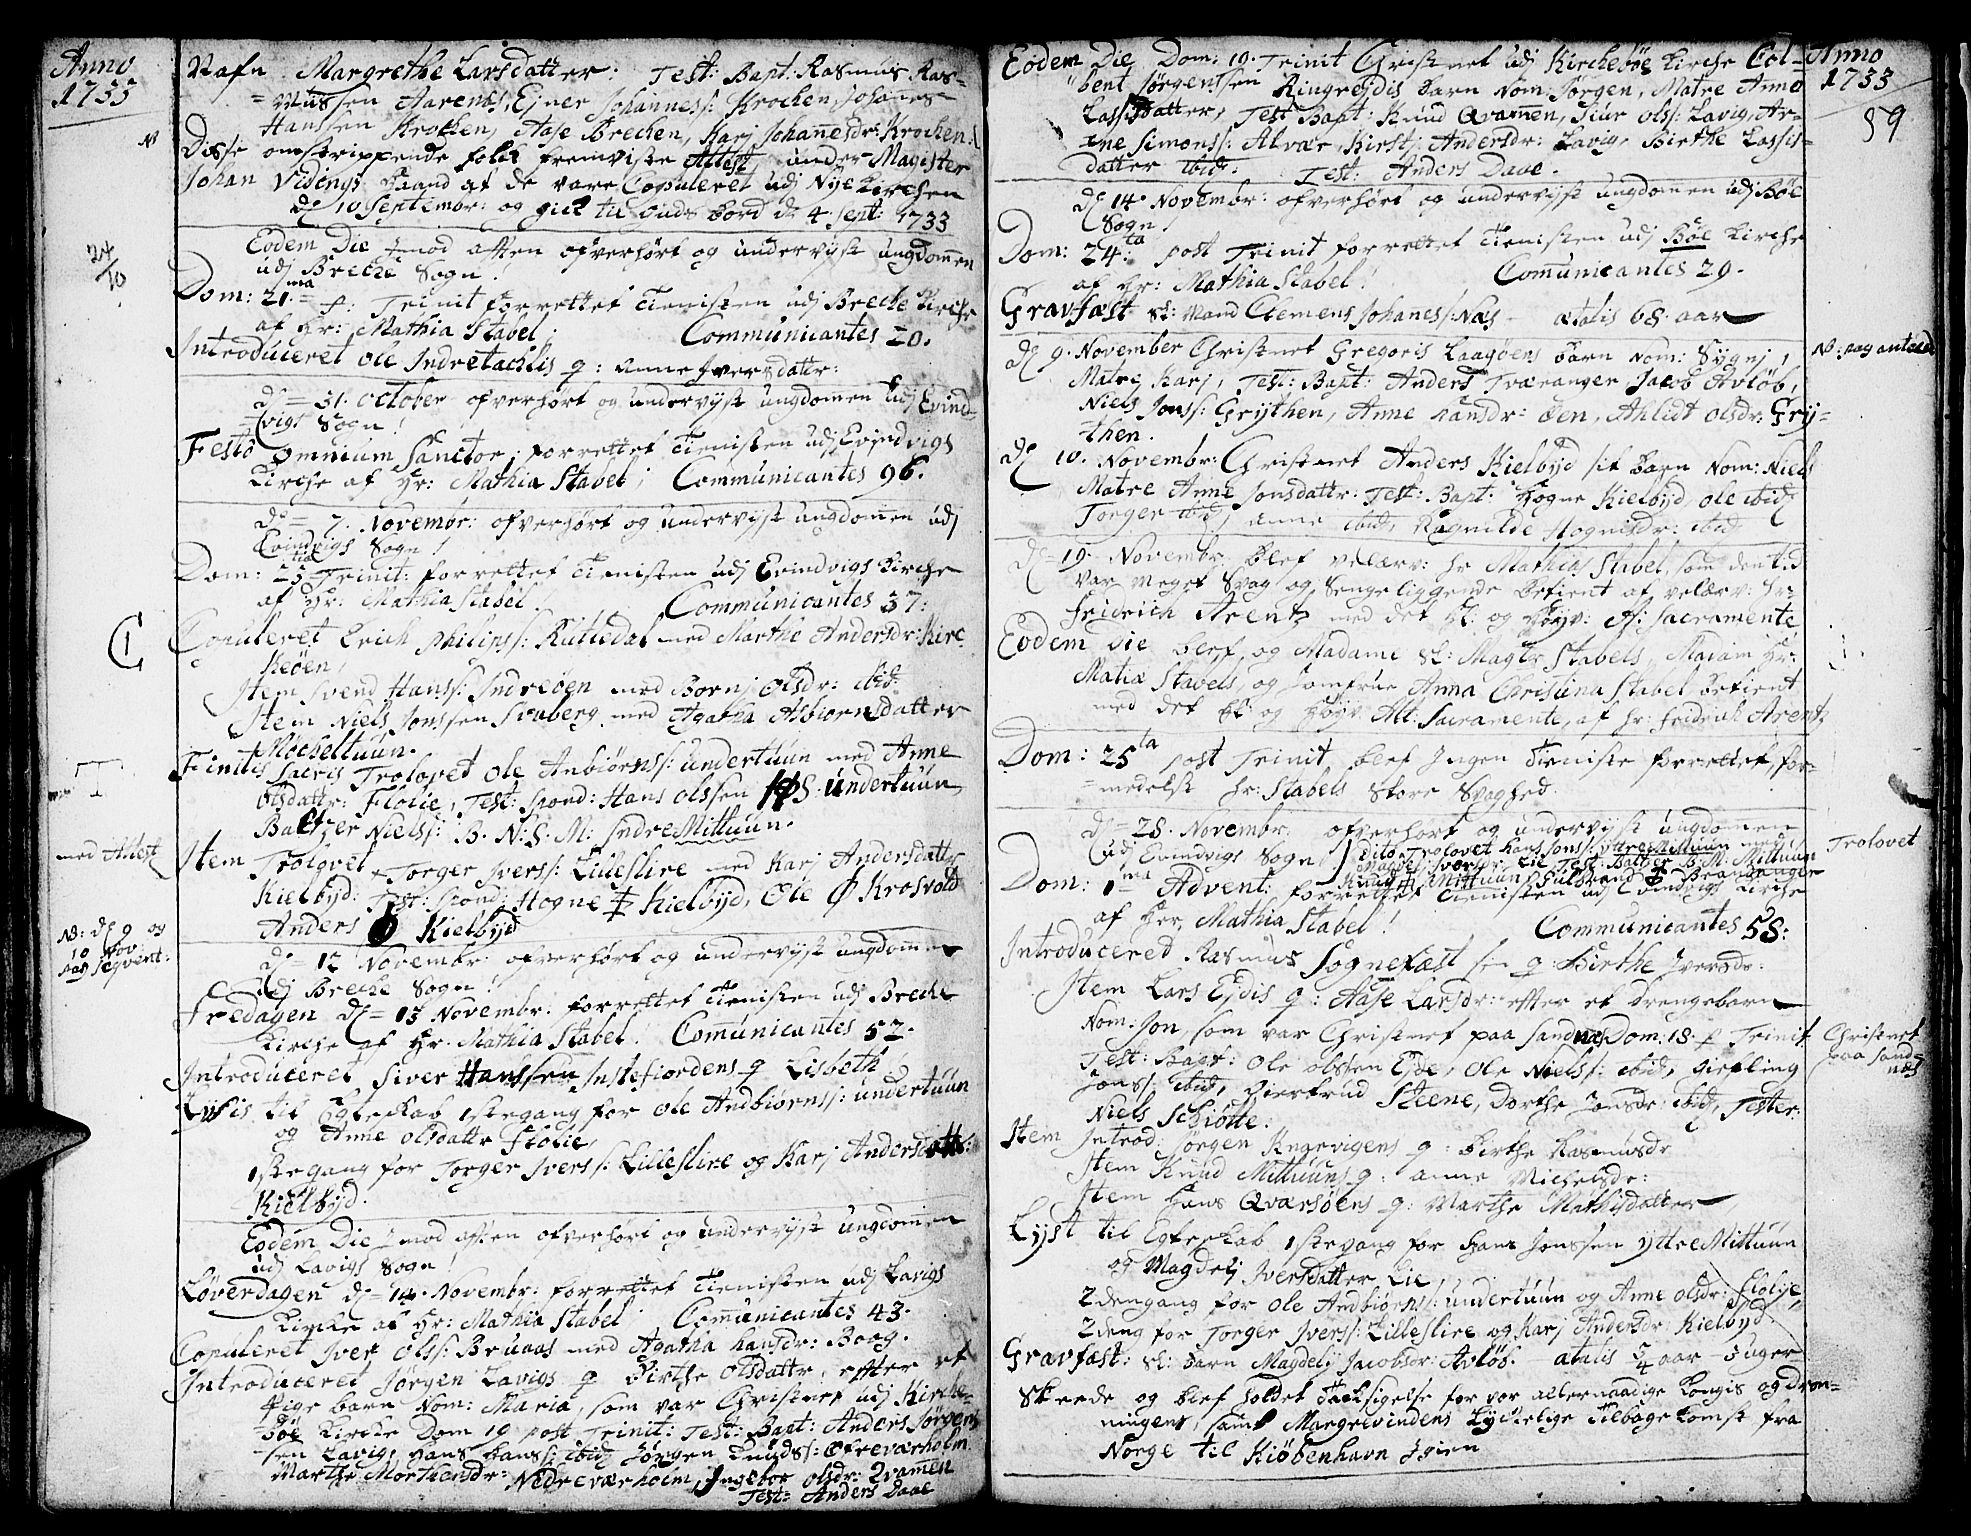 Anno
1733
Nafn Margrethe Larsdatter: Test: Bapt: Rasmus Ras-
mussen Aarenes, Ejner Johanness: Krochen, Johannes
Hanssen Krochen, Aase Brechen, Karj Johannesdr: Krochen.
NB
Disse omstrippende folck fremviiste Attest under Magister
Johan Vidings haand at de vare Copuleret udj Nye Kirchen
d 10 Septembr: og gick til Guds bord d 4 Sept: 1733
24/10
Eodem Die imod aften ofverhørt og underviist ungdommen
udj Breche Sogn!
Dom: 21ma p. Trinit forrettet Tienisten udj Breche Kirche
af Hr: Mathia Stabel. Communicantes 20.
Introduceret Ole Indretachlis q: Anne Iversdatr:
d 31 October ofverhørt og underviist ungdommen udj Evind-
vigs Sogn!
Festo Omnium Sanctor: forrettet Tienisten udj Evindvigs
Kirche af Hr: Mathia Stabel; Communicantes 96.
d 7. Novembr: ofverhørt og underviist ungdommen udj
Evindvigs Sogn!
Dom: 23tia Trinit: forrettet Tienisten udj Evindvigs Kirche
af Hr: Mathia Stabel! Communicantes 37:
Copuleret Erich Philips: Rutledal med Marthe Andersdr: Kire
Keøen,
Item Svend Hanss: Indreøen med Bornj Olsdr: ibid:
Item Niels Jonssen Svaberg med Agatha Asbiørnsdatter
Møcheltuun.
Finitis Sacris Trolovet Ole Anbiørnss: undertuun med Anne
Olsdattr: Flolie, Test: Spond: Hans Olssen HOS undertuun
Baltzer Nielss: B. N: S. M: Indre Mittuun.
med Attest
Item Trolovet Torger Iverss: Lilleslire med Karj Andersdatter
Kielbyd: Test: Spond: Hogne Kielbyd, Ole Krosvold
Anders Kielbyd
NB: d 9 og
10 Nov:
paa seqvent:
d 12 Novembr: ofverhørt og underviist ungdommen
udj Breche Sogn!
Fredagen d 13 Novembr: forrettet Tienisten udj Breche
Kirche af Hr. Mathia Stabel! Communicantes 52.
Introduceret Siver Hanssen Instefiordens q Lisbeth!
Lysis til Egteskab 1stegang for Ole Andbiørnss: undertuun
og Anne Olsdattr Flolie,
1stegang for Torger Iverss: Lilleslire og Karj Andersdattr:
Kielbyd.
Eodem Die imod aften ofverhørt og underviist ungdommen
udj Lavigs Sogn!
Løverdagen d 14. Novembr: forrettet Tienisten udj Lavigs
Kirche af Hr: Mathia Stabel Communicantes 43.
Copuleret Iver Olss: Bruaas med Agatha Hansdr: Boag.
Introduceret Jørgen Lavigs q Birthe Olsdattr, efter et
Pige barn Nom: Maria, som var Christnet udj Kirche-
bøe Kirche Dom 19 post Trinit: Test: Bapt: Anders Jørgen-
sen Lavig, Hans Hanss: ibid: Jørgen Knuds: Øfreværholm
Marthe Morthensdr: Nedreværholm, Ingebor Olsdr: Qvamen
Test: Anders Daae
Eodem Die Dom: 19. Trinit Christnet udj Kirchebøe Kirche Col-
bent Jørgenssen Ringrejdis barn Nom: Jørgen, Matre Anno
Lassisdatter, Test Bapt: Knud Qvamen, Siur Ols: Lavig, Ar-
ne Simonss: Alvær, Kirstj Andersdr: Lavig, Birthe Lassis-
datter ibid. Test: Anders Daae.
Anno
1733
89
d 14. Novembr: ofverhørt og underviist ungdommen udj Bøe
Sogn!
Dom: 24ta post Trinit forrettet Tienisten udj Bøe Kirche
af Hr: Mathia Stabel! Comunicantes 29.
Gravfæst Sl: Mand Clemens Johaness: Næs ætatis 68 aar
NB: pag antced
d 9. November Christnet Gregoris Laagøens barn Nom: Sygnj,
Matre Karj, Test: Bapt: Anders Tværanger Jacob Avløb,
Niels Jonss: Grythen, Anne Hansdr: Øen, Ahlidt Olsdr: Gry-
then.
d 10. Novembr: Christnet Anders Kielbyd sit barn Nom: Niels
Matre Anne Jonsdattr: Test: Bapt: Hogne Kielbyd, Ole ibid
Torger ibid, Anne ibid, Ragnilde Hognisdr: ibid
d 19. Novembr blef velærv: Hr Mathias Stabel, som den tid
var meget Svag og Sengeliggende betient af velærv: Hr
Fridrich Arentz med det H: og Højv: A: Sacramente
Eodem Die blef og Madame Sl: Magtr Stabels, Madam Hr:
Matiæ Stabels, og Jomfrue Anna Christina Stabel betient
med det H: og Højv: Alt: Sacramente, af Hr: Fridrich Arentz
Dom: 25ta post Trinit blef Ingen Tieniste forrettet, for-
medelst Hr: Stabels Store Svaghed.
d 28. Novembr: ofverhørt og underviist ungdommen
udj Evindvigs Sogn! dito Trolovet Hans Jonss: yttre Mittuun med
Magdelj Iversdr: Lie Test: Baltzer B. M: Mittuun
Knud Mittuun, Gulbrand Brandanger
Trolovet
Dom: 1ma Advent: forrettet Tienisten udj Evindvigs Kirche
af Her. Mathia Stabel! Communicantes 58:
Introducered Rasmus Sognefæst sin q: Birthe Iversdr:
Item Lars Ejdis q: Aase Larsdr: efter et drengebarn
Nom: Jon, som var Christnet paa Sandnæs Dom: 18. p Trinit
Test: Bapt: Ole Olssen Ejde, Ole Nielss: ibid, Giefling
Jonss: ibid, Giertrud Steene, Dorthe Jonsdr ibid, Tester:
Niels Schiøtte.
Christnet
paa Sand-
næs
Item Introd: Jørgen Knarvigens q: Birthe Rasmusdr
Item Knud Mittuuns q: Anne Michelsdr:
Item Hans Qværsøens q: Marthe Mathisdatter,
Lyst til Egteskab 1stegang for Hans Jonssen yttre Mittuun
og Magdelj Iversdatter Lie,
2dengang for Ole Andbiørnss: undertuun og Anne Olsdr: Flolie,
2deng for Torger Iverss: Lilleslire og Karj Andersdr: Kielbyd
Gravfæst: Sl: barn Magdelj Jacobsdr: Avløb. ætatis 3/4 aar
Skeede og blef holdet Tacksigelse for vor allernaadige Kongis og Dron-
ningens, samt Margrevindens Lyckelige Tilbagekomst fra
Norge til Kiøbenhavn Igien